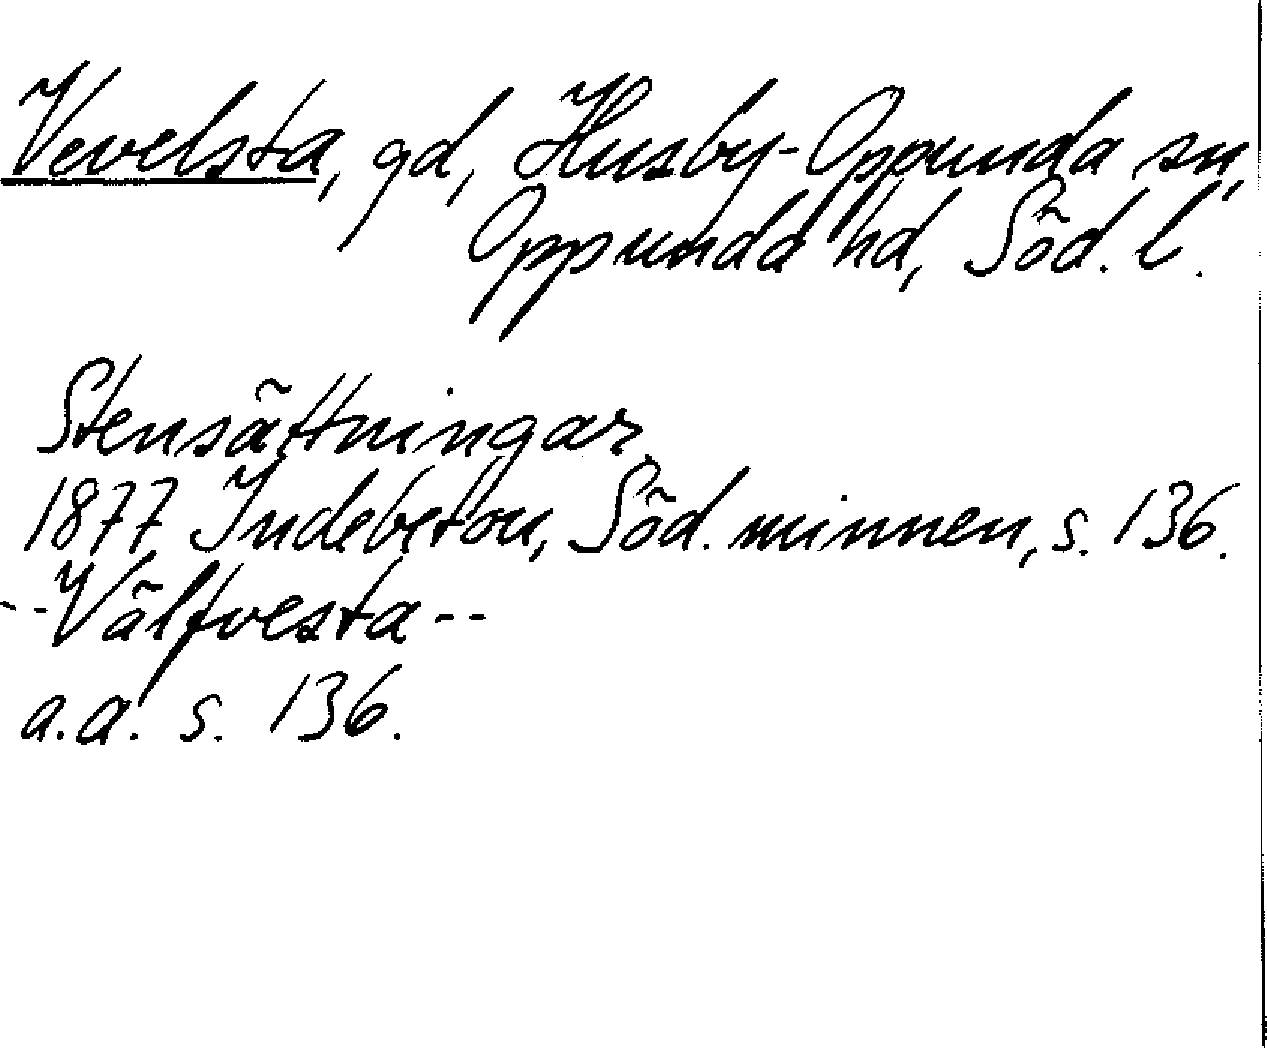 Vevelsta, gd, Husby-Oppunda sn,
Oppunda hd, Söd. l.
Stensättningar.
1877 Indebetou, Söd. minnen, s. 136.
--Välfvesta--
a.a. s. 136.